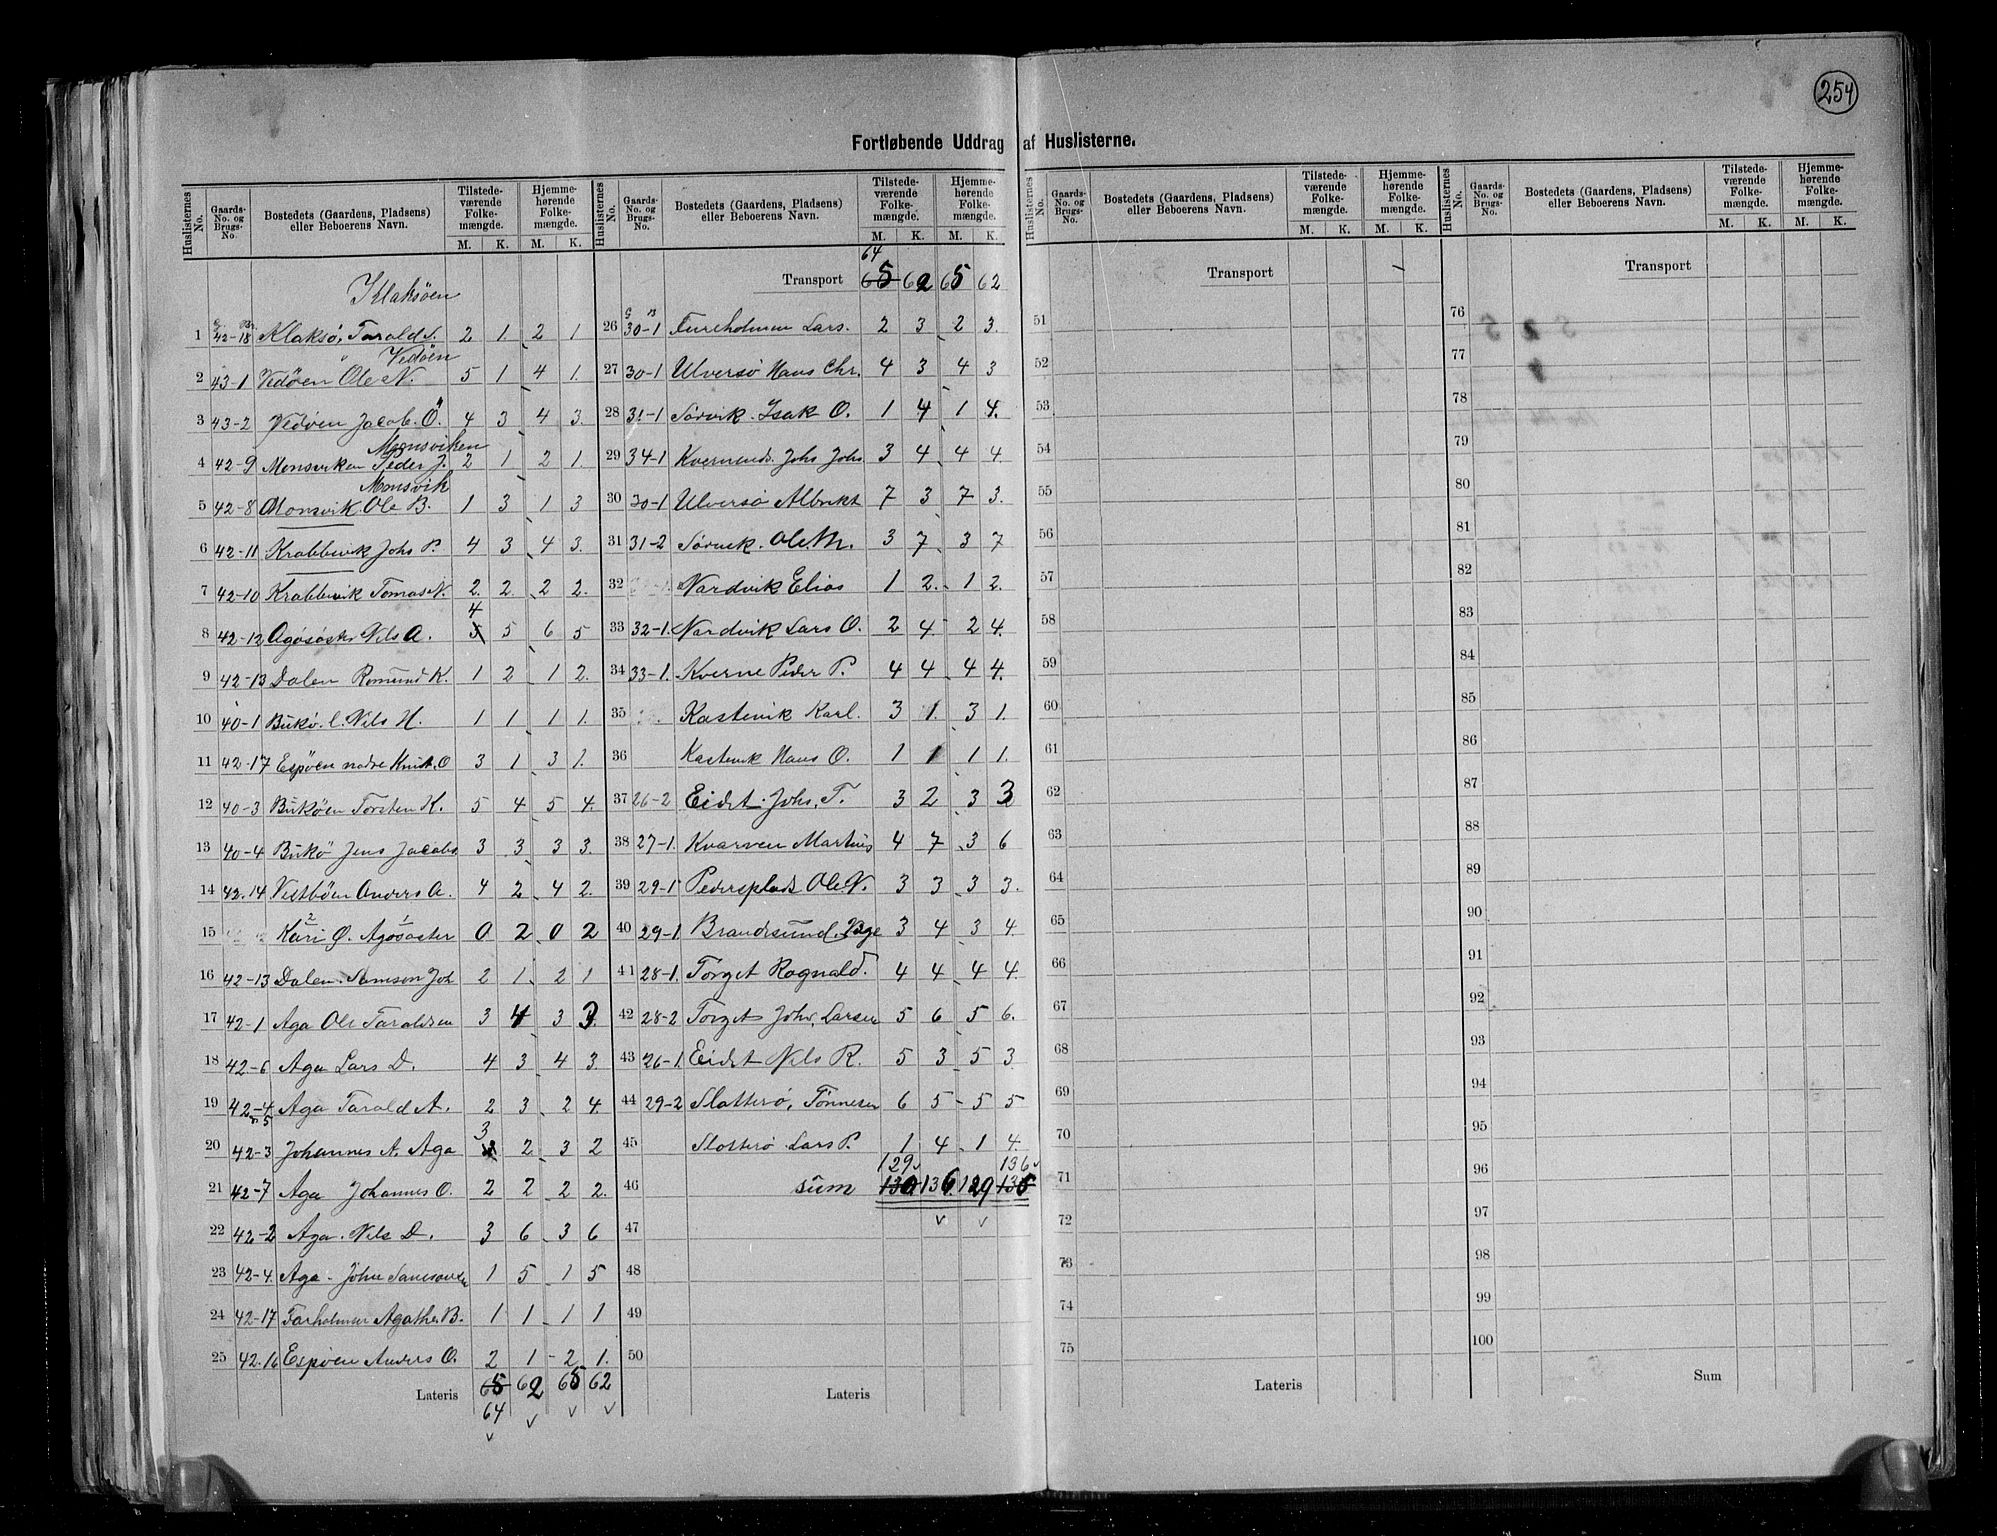 254
Fortløbende Uddrag af Huslisterne.
Huslisternes No. Gaards-No. og Brugs-No. Bostedets (Gaardens, Pladsens) eller Beboerens Navn. Tilstedeværende Folkemængde. Hjemmehørende Folkemængde. M. K. M. K.
Klaksöen
1 42-18 Klaksö, Tarald S. 2 1 2 1
Vedöen
2 43-1 Vedöen Ole N. 5 1 4 1.
3 43-2 Vedöen Jacob Ö. 4 3 4 3.
Monsviken
4 42-9 Monsviken Peder J. 2 1 2 1.
Monsvik
5 42-8 Monsvik Ole B. 1 3 1 3
6 42-11 Krabbevik Johs P. 4 3 4 3.
7 42-10 Krabbevik Tomas N. 2 2 2 2.
4
8 42-12 Agösöster Nils A. 5 5 6 5
9 42-13 Dalen Romund K. 1 2 1 2.
10 40-1 Bukö. l. Nils H. 1 1 1 1.
11 42-17 Espöen nadre Knut. O 3 1 3 1.
12 40-3 Buköen Torsten K. 5 4 5 4.
13 40-4 Bukö Jens Jacobs 3 3 3 3.
14 42.14 Vestböen Anders A. 4 2 4 2.
15 Kari O. Agösöster 0 2 0 2
16 42-13 Dalen. Samson Joh 2 1 2 1
17 42-1 Aga Ole Taraldsen 3 4 3 3.
18 42-6 Aga Lars D. 4 3 4 3.
19 42-4 Aga Tarald A. 2 3 2 4.
5 3
20 42-3 Johannes A. Aga 2 3 2
21 42-7 Aga Johannes O. 2 2 2 2.
22 42-2 Aga. Nils D. 3 6 3 6
23 42-4. Aga - John Samsonsen 1 5 1 5
24 42-17 Tarholmen Agathe B. 1 1 1 1
25 42.16 Espöen Anders O. 2 1 2 1.
Lateris 65 62 65 62
64
Huslisternes No. Gaards-No. og Brugs-No. Bostedets (Gaardens, Pladsens) eller Beboerens Navn. Tilstedeværende Folkemængde. Hjemmehørende Folkemængde. M. K. M. K.
64
Transport 65 62 65 62
26 30-1 Fureholmen Lars. 2 3 2 3.
27 30-1 Ulversö Hans Chr. 4 3 4 3
28 31-1 Sörvik. Isak O. 1 4 1 4.
29 34-1 Kvernends. Johs Johs 3 4 4 4.
30 30-1 Ulversö Albrikt 7 3 7 3.
31 31-2 Sörvik. Ole M. 3 7 3 7
32 Nardvik Elias 1 2 1 2.
33 32-1. Nardvik Lars O. 2 4 2 4.
34 33-1. Kverne Peder P. 4 4 4 4.
35 Kastevik Karl. 3 1. 3 1.
36 Kastevik Hans O. 1 1 1 1.
37 26-2 Eidet. Johs. T. 3 2 3 3
38 27-1. Kvarven Martius 4 7 3 6
39 29-1 Pedersplads Ole N. 3 3 3 3.
40 29-1. Brandesund. 3 4 3 4.
41 28-1. Torget Ragnald. 4 4 4 4.
42 28-2 Torget Johs. Larsen 5 6 5 6.
43 26-1. Eidet Nils R. 5 3 5 3
44 29-2 Slatterö, Tönnesen 6 5 5 5
45 Slotterö Lars P. 1 4 1 4.
129 136
46 sum 130 136 129 135
47
48
49
50
Lateris
Huslisternes No. Gaards-No. og Brugs-No. Bostedets (Gaardens, Pladsens) eller Beboerens Navn. Tilstedeværende Folkemængde. Hjemmehørende Folkemængde. M. K. M. K.
Transport
51
52
53
54
55
56
57
58
59
60
61
62
63
64
65
66
67
68
69
70
71
72
73
74
75
Lateris
Huslisternes No. Gaards-No. og Brugs-No. Bostedets (Gaardens, Pladsens) eller Beboerens Navn. Tilstedeværende Folkemængde. Hjemmehørende Folkemængde. M. K. M. K.
Transport
76
77
78
79
80
81
82
83
84
85
86
87
88
89
90
91
92
93
94
95
96
97
98
99
100
Sum